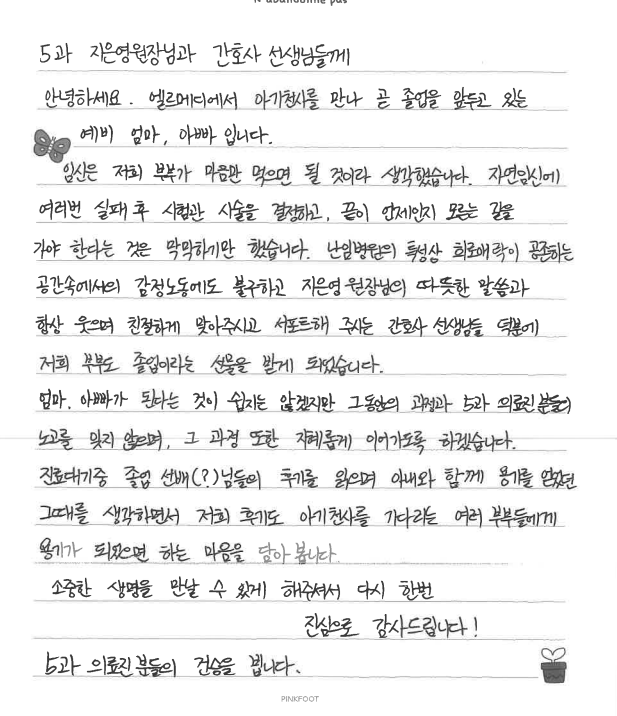 N'abandonne pas
5과 지은영원장님과 간호사 선생님들께
안녕하세요. 엘르메디에서 아기천사를 만나 곧 졸업을 앞두고 있는
예비 엄마, 아빠 입니다.
임신은 저희 부부가 마음만 먹으면 될 것이라 생각했습니다. 자연임신에
여러번 실패 후 시험관 시술을 결정하고, 끝이 언제인지 모르는 길을
가야 한다는 것은 막막하기만 했습니다. 난임병원의 특성상 희로애락이 공존하는
공간속에서의 감정노동에도 불구하고 지은영 원장님의 따뜻한 말씀과
항상 웃으며 친절하게 맞아주시고 서포트해 주시는 간호사 선생님들 덕분에
저희 부부도 졸업이라는 선물을 받게 되었습니다.
엄마, 아빠가 된다는 것이 쉽지는 않겠지만 그동안의 과정과 5과 의료진분들의
노고를 잊지 않으며, 그 과정 또한 지혜롭게 이어가도록 하겠습니다.
진료대기중 졸업 선배(?)님들의 후기를 읽으며 아내와 함께 용기를 얻었던
그때를 생각하면서 저희 후기도 아기천사를 기다리는 여러 부부들에게
용기가 되었으면 하는 마음을 담아 봅니다.
소중한 생명을 만날 수 있게 해주셔서 다시 한번
진심으로 감사드립니다!
5과 의료진분들의 건승을 빕니다.
PINKFOOT